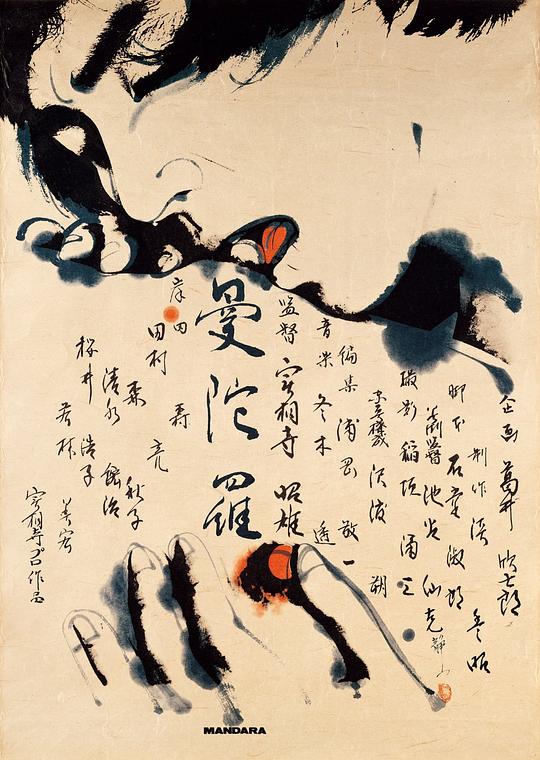 企画 葛井 欣士郎
制作 淡 豊昭
脚本 石堂 淑朗
美術監督 池谷 仙克
撮影 稲垣 涌三
沢渡 朔
編集 浦岡 敬一
音楽 冬木 透
監督 実相寺 昭雄
曼陀羅
岸田 森
田村 亮
森 秋子
清水 紘治
桜井 浩子
若林 美宏
実相寺プロ作品
MANDARA